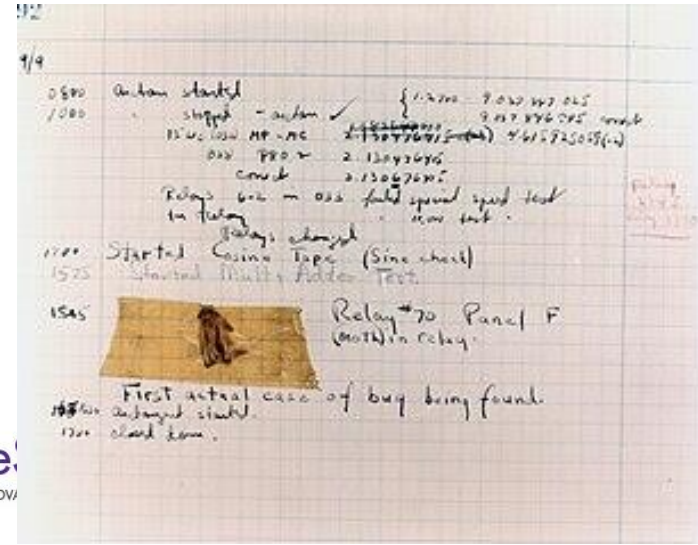 92
9/9
0800 antan started
1000 stopped - antan ✓
{ 1.2700 9.037 847 025
9.037 846 995 correct
13"uc (032) MP-MC 4.615925059(-2)
033 PRO 2 2.130476415
correct 2.130676415
Relays 6-2 in 033 failed special speed test
in relay " test.
Relays changed
1700 Started Cosine Tape (Sine check)
1525 Started Multi Adder Test.
1545 Relay #70 Panel F
(moth) in relay.
First actual case of bug being found.
antangent started.
1700 closed down.